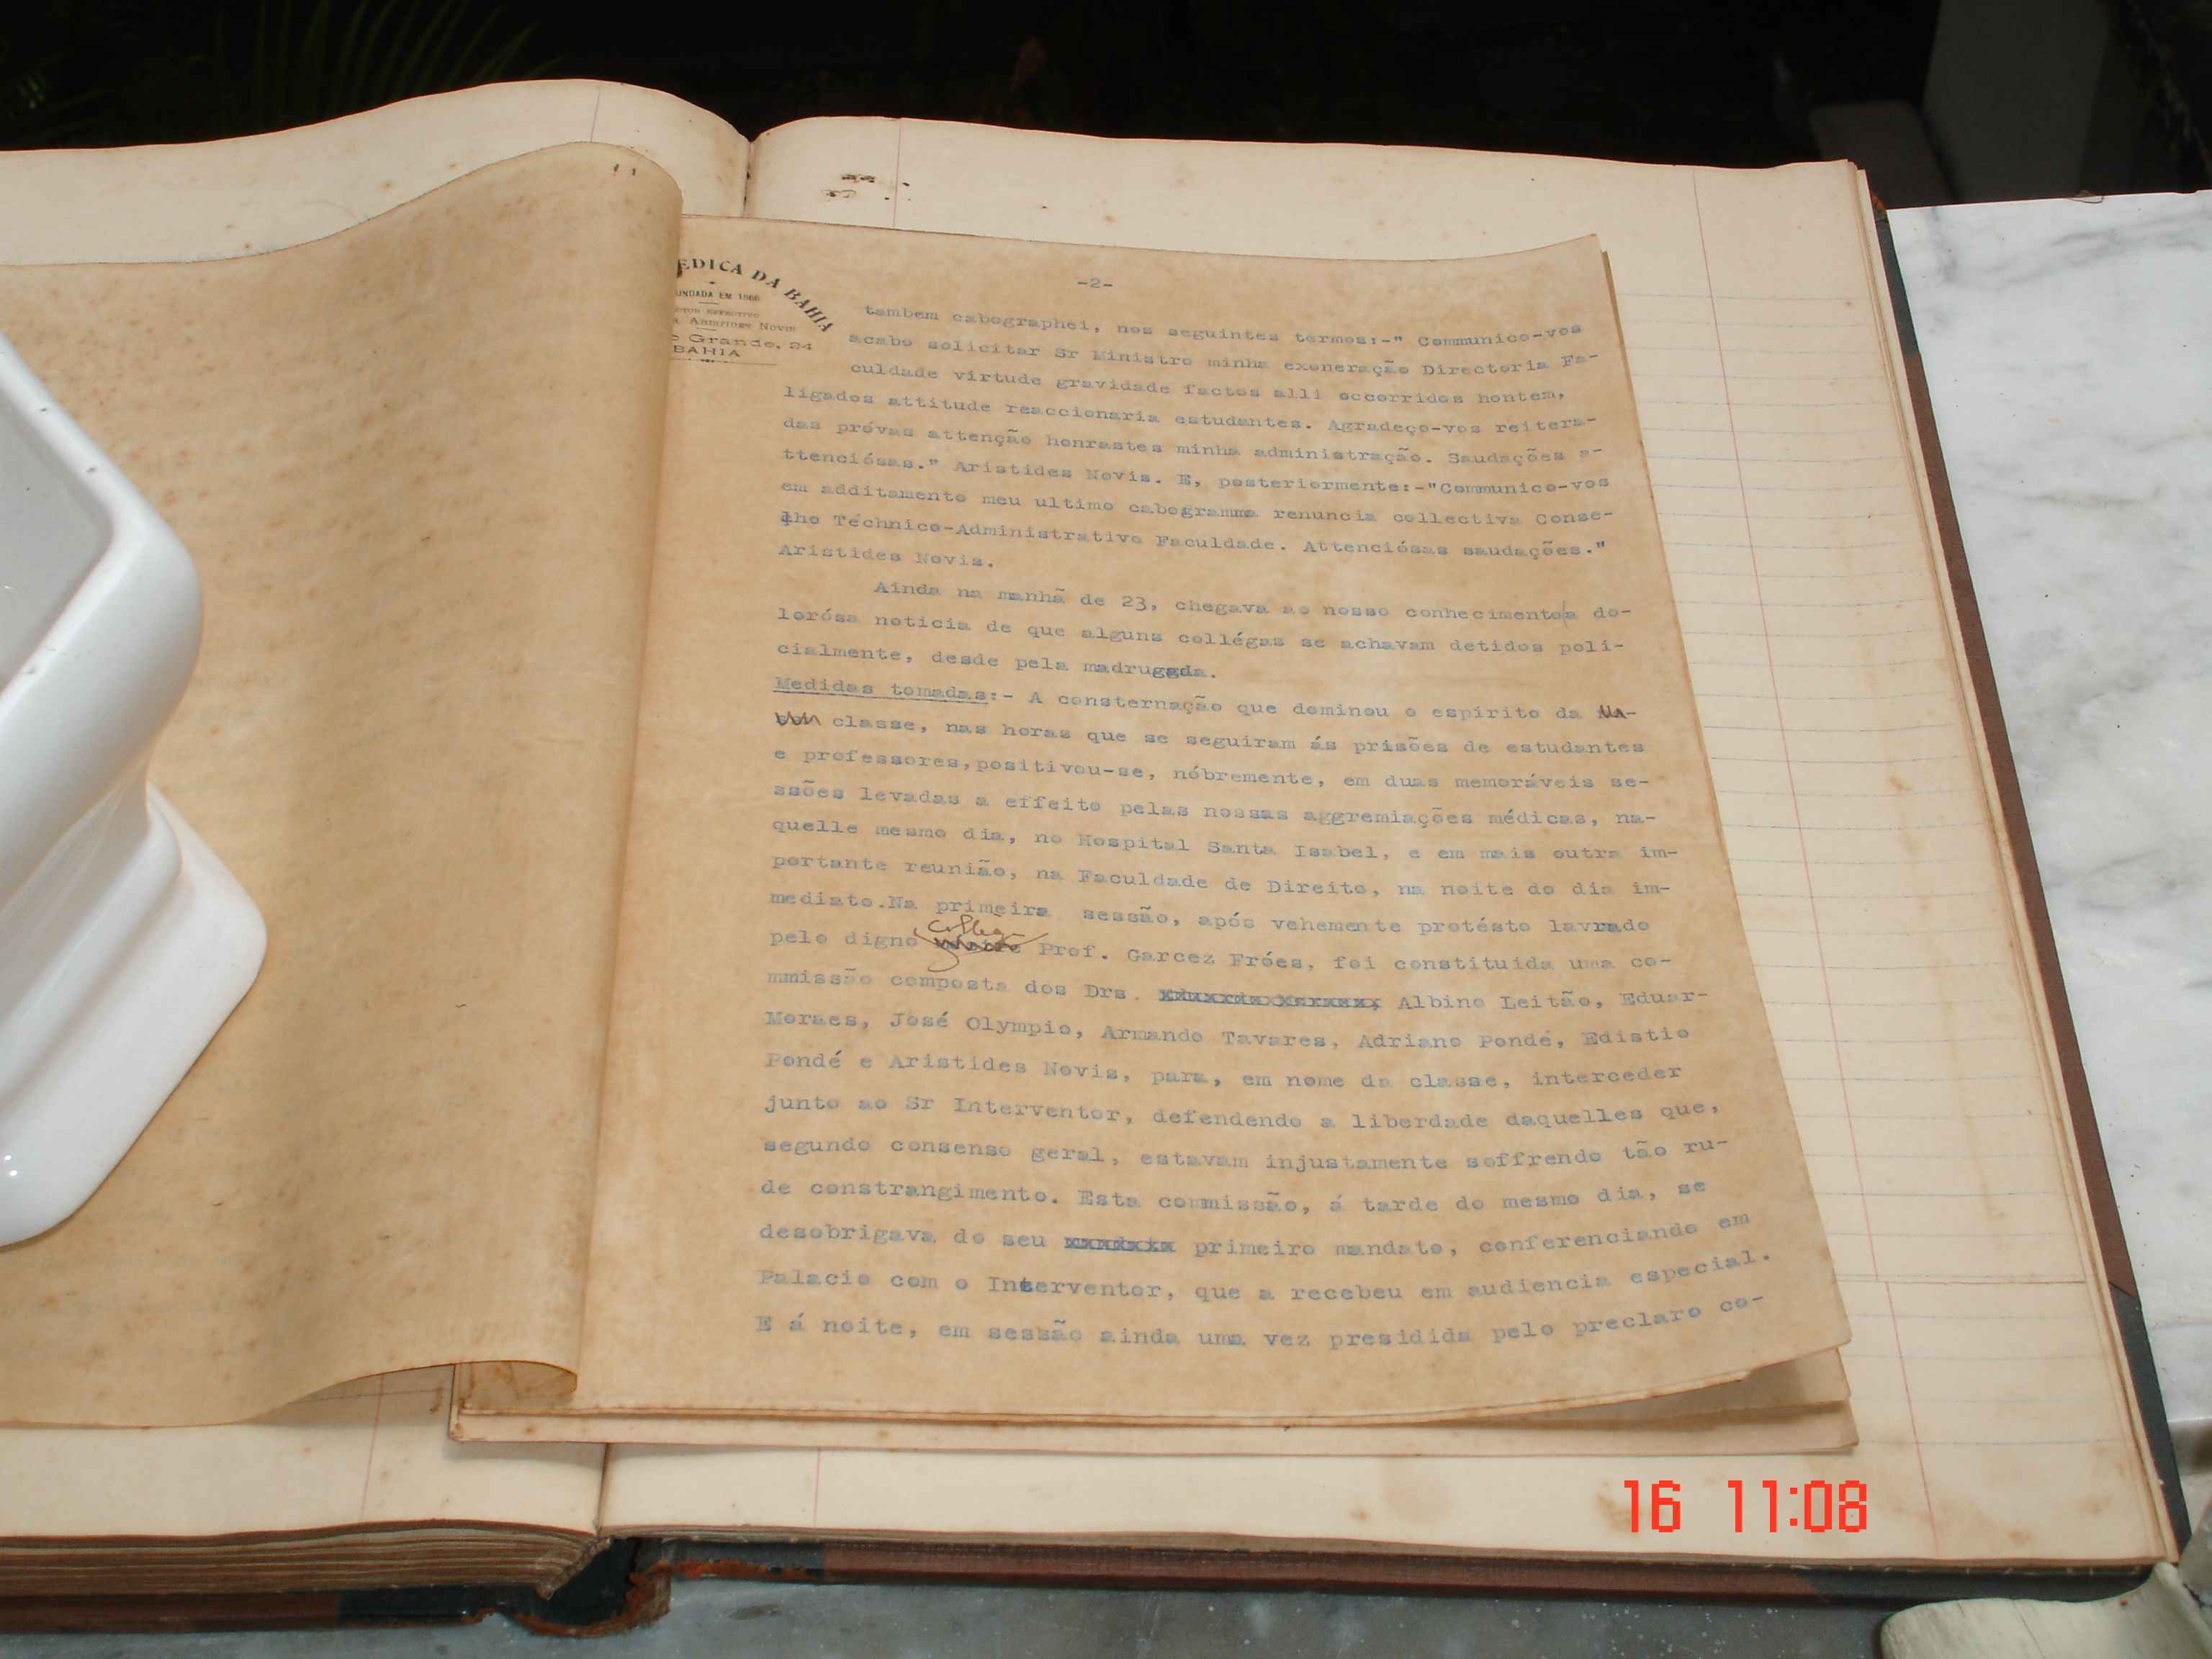 EDICA DA BAHIA
UNDADA EM 1866
Aristides Novis
Grande, 24
BAHIA
-2-
tambem cabographei, nos seguintes termos:-" Communico-vos
acabo solicitar Sr Ministro minha exoneração Directoria Fa-
culdade virtude gravidade factos alli occorridos hontem,
ligados attitude reaccionaria estudantes. Agradeço-vos reitera-
das próvas attenção honrastes minha administração. Saudações a-
ttenciósas." Aristides Novis. E, posteriormente:-"Communico-vos
em additamento meu ultimo cabogramma renuncia collectiva Conse-
lho Téchnico-Administrativo Faculdade. Attenciósas saudações."
Aristides Novis.
Ainda na manhã de 23, chegava ao nosso conhecimento a do-
lorósa noticia de que alguns collégas se achavam detidos poli-
cialmente, desde pela madrugada.
Medidas tomadas:- A consternação que dominou o espirito da
classe, nas horas que se seguiram ás prisões de estudantes
e professores,positivou-se, nóbremente, em duas memoráveis se-
ssões levadas a effeito pelas nossas aggremiações médicas, na-
quelle mesmo dia, no Hospital Santa Isabel, e em mais outra im-
portante reunião, na Faculdade de Direito, na noite do dia im-
mediato.Na primeira sessão, após vehemente protésto lavrado
colléga
pelo digno Prof. Garcez Fróes, foi constituida uma co-
mmissão composta dos Drs. Albino Leitão, Eduar-
Moraes, José Olympio, Armando Tavares, Adriano Pondé, Edistio
Pondé e Aristides Novis, para, em nome da classe, interceder
junto ao Sr Interventor, defendendo a liberdade daquelles que,
segundo consenso geral, estavam injustamente soffrendo tão ru-
de constrangimento. Esta commissão, á tarde do mesmo dia, se
desobrigava do seu primeiro mandato, conferenciando em
Palacio com o Interventor, que a recebeu em audiencia especial.
E á noite, em sessão ainda uma vez presidida pelo preclaro co-
16 11:08